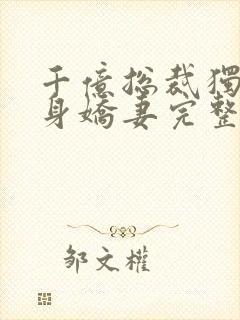 千億總裁獨
身嬌妻完整
鄒文權